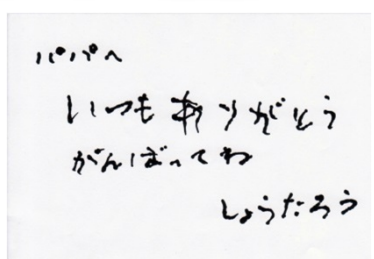 パパへ
いつもありがとう
がんばってね
しょうたろう